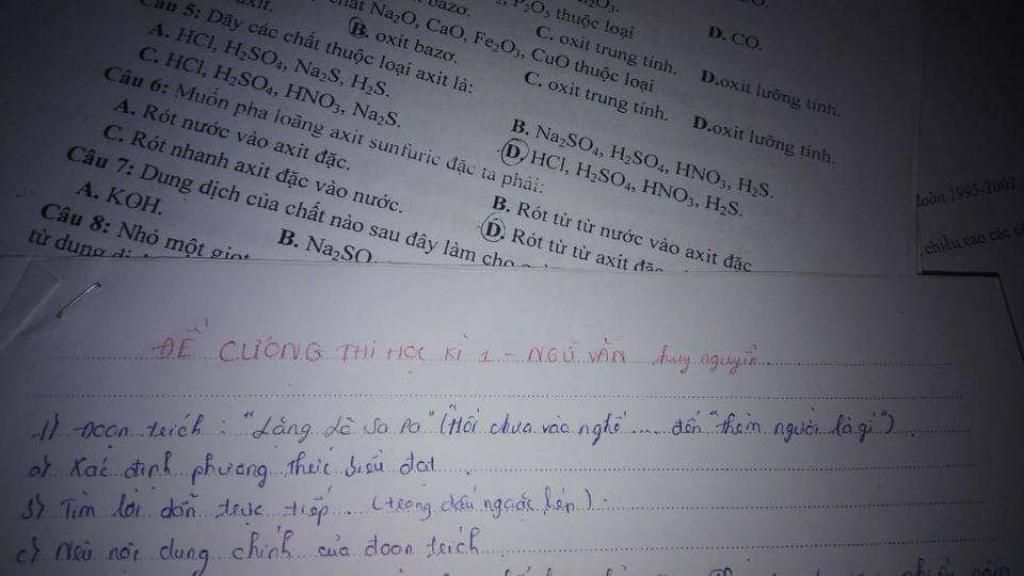 P₂O₅ thuộc loại
D. CO.
C. oxit trung tính. D.oxit lưỡng tính.
chất Na₂O, CaO, Fe₂O₃, CuO thuộc loại
B. oxit bazơ. C. oxit trung tính. D.oxit lưỡng tính.
Câu 5: Dãy các chất thuộc loại axit là:
A. HCl, H₂SO₄, Na₂S, H₂S. B. Na₂SO₄, H₂SO₄, HNO₃, H₂S.
C. HCl, H₂SO₄, HNO₃, Na₂S. D. HCl, H₂SO₄, HNO₃, H₂S.
Câu 6: Muốn pha loãng axit sunfuric đặc ta phải:
A. Rót nước vào axit đặc. B. Rót từ từ nước vào axit đặc
C. Rót nhanh axit đặc vào nước. D. Rót từ từ axit đặc
Câu 7: Dung dịch của chất nào sau đây làm cho
A. KOH. B. Na₂SO
Câu 8: Nhỏ một giọt
từ dung
1995-2002
chiều cao các
ĐỀ CƯƠNG THI HỌC KÌ 1 - NGỮ VĂN huy nguyễn
1) Đoạn trích : "Lặng Lẽ Sa Pa" ("Hồi chưa vào nghề .... đến "thèm người là gì")
a) Xác định phương thức biểu đạt
b) Tìm lời dẫn trực tiếp . (trong dấu ngoặc kép).
c) Nêu nội dung chính của đoạn trích